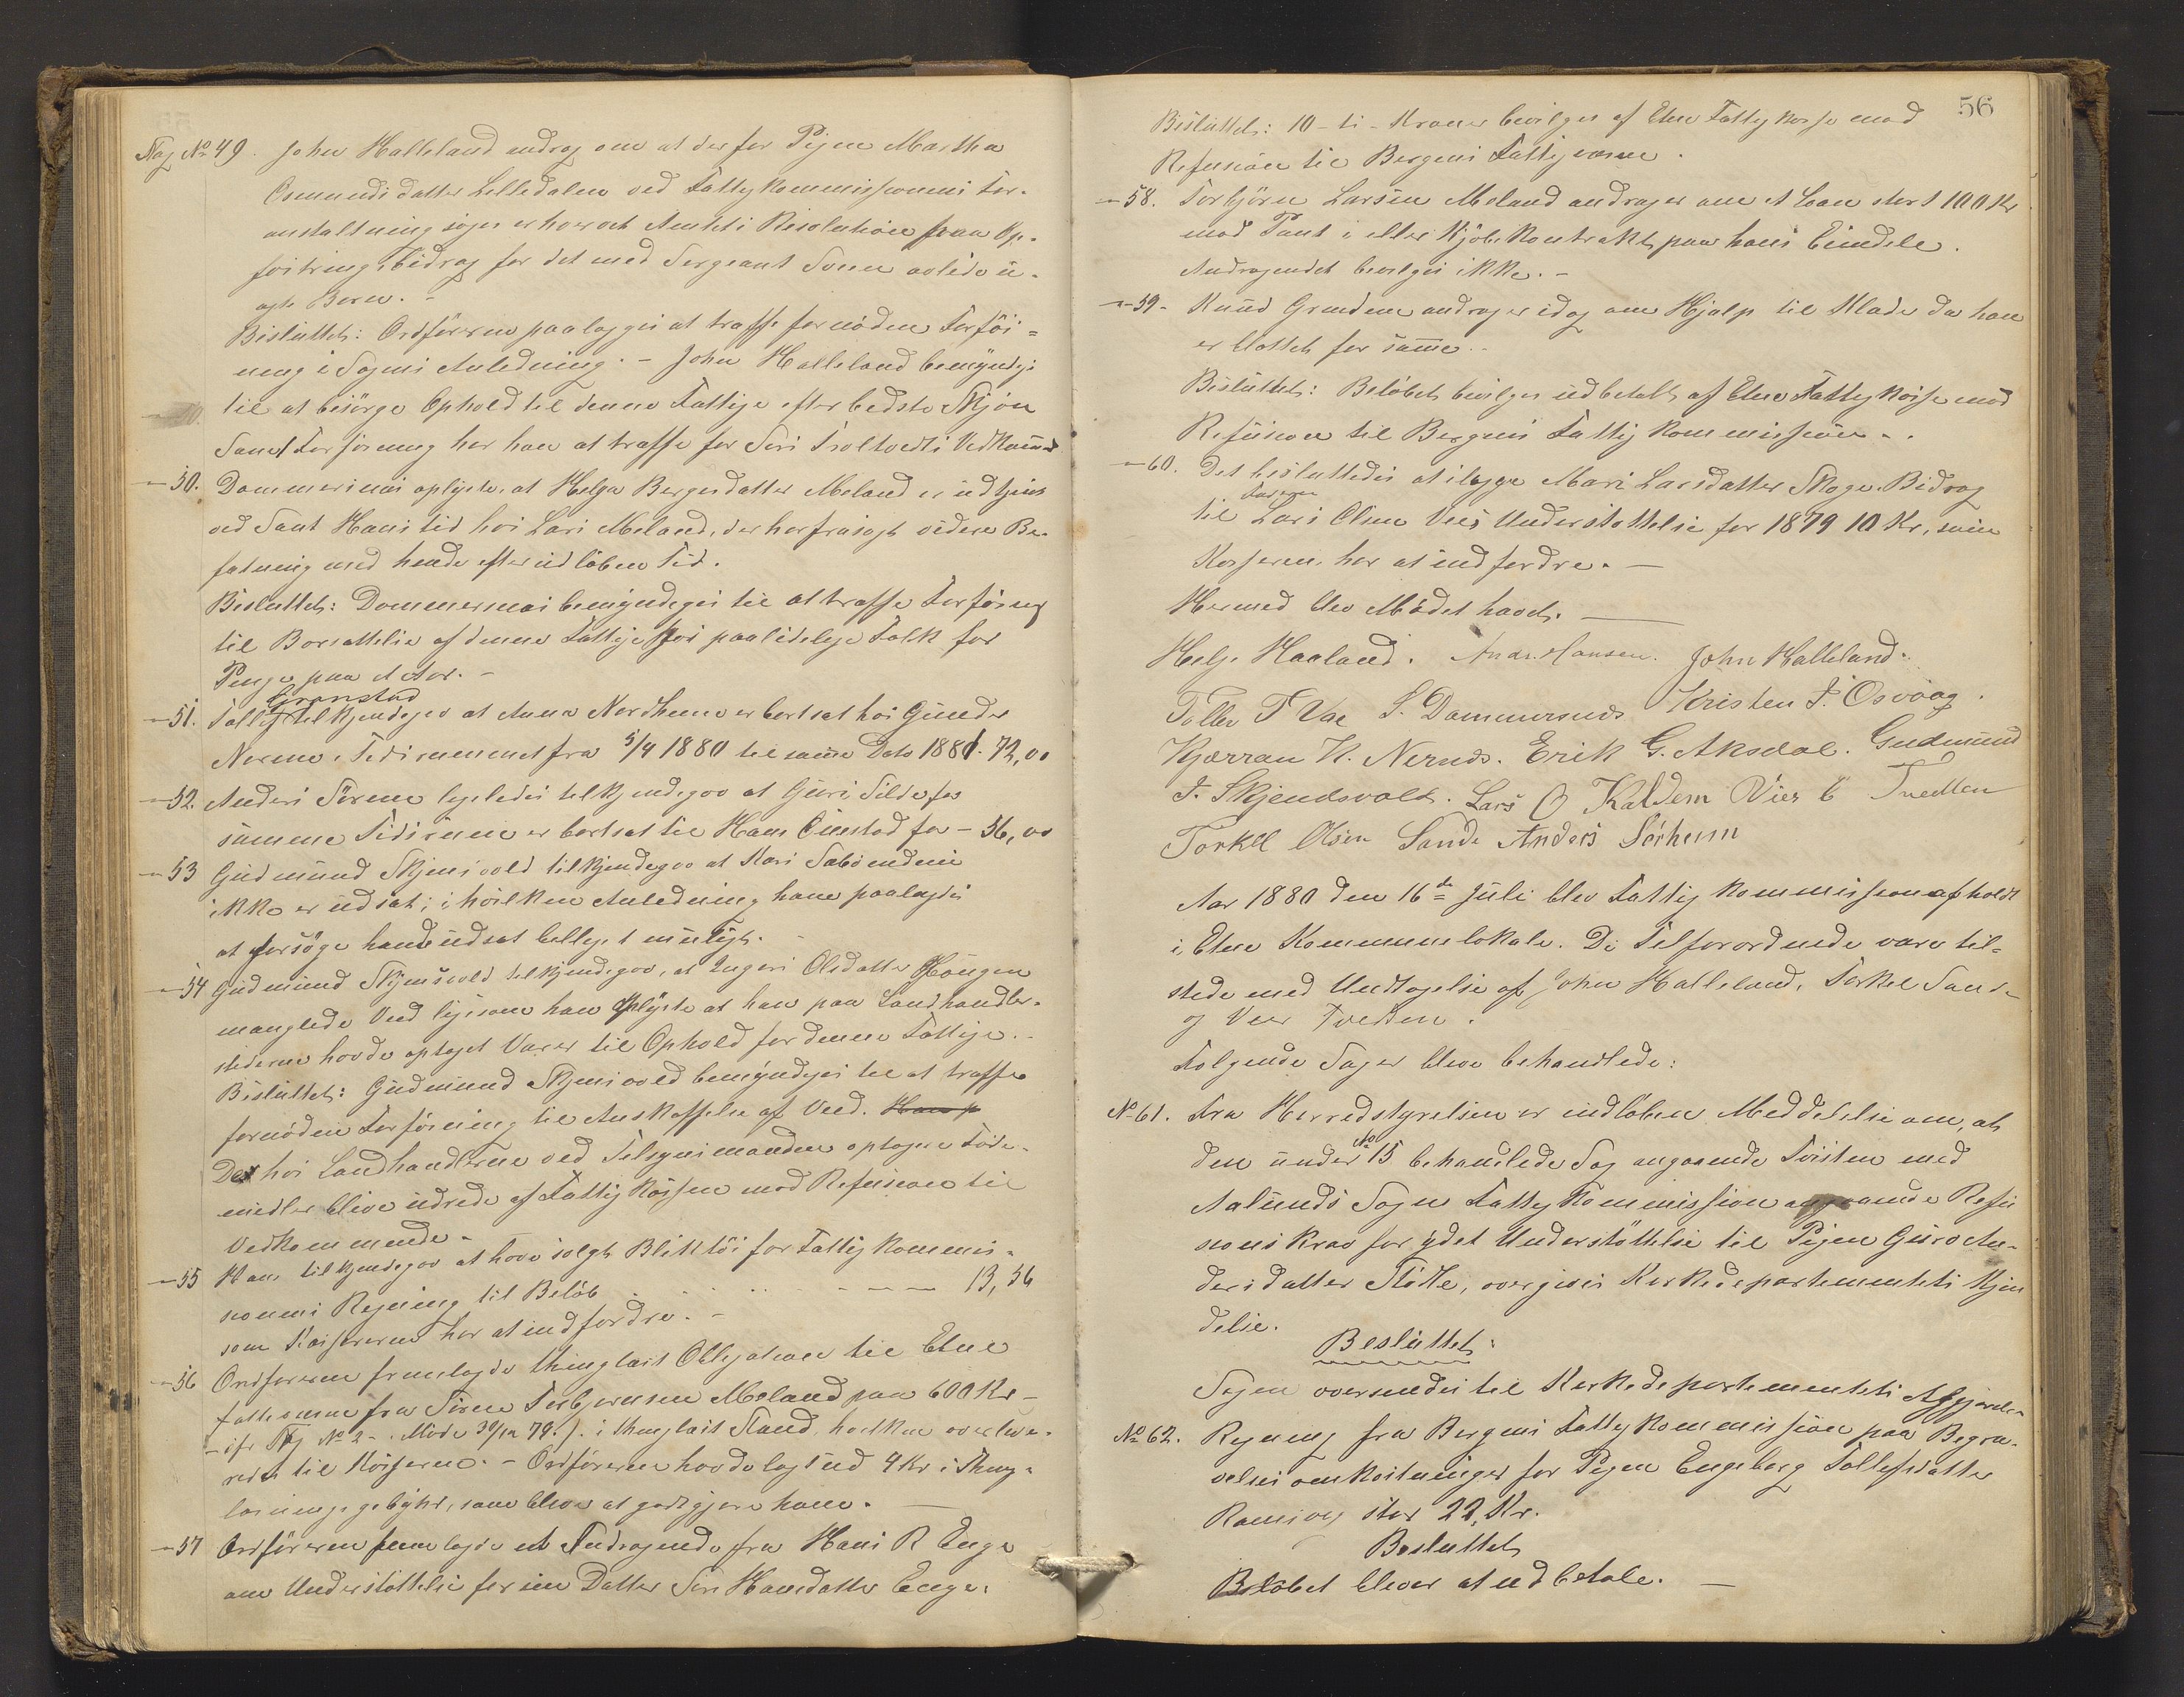 Sag No 49. John Halleland androg om at der for Pigen Martha
Osmundsdatter Lilledalen ved Fattigkommissionens For-
anstaltning søges erhvervet Amtets Resolution paa Op-
fostringsbidrag for det med Sergeant Sveen avlede u-
ægte Barn. -
Besluttet: Ordføreren paalægges at træffe fornøden Forføi-
ning i Sagens Anledning. - John Halleland bemyndiges
til at besørge Ophold til denne Fattige efter bedste Skjøn
Samt Forføining har han at træffe for Siri Troltvedts Vedkommende
- 50. Dommersnæs oplyste, at Helga Bergesdatter Meland er udtjent
ved Sant Hans tid hos Lars Meland, der har frasagt videre Be-
fatning med hende efter udløben Tid.
Besluttet: Dommersnæs bemyndiges til at træffe Forføining
til Bortsættelse af denne Fattige hos paalidelige Folk for
Penge paa et Aar. -
Grønstad
- 51. Tollef tilkjendegav at Anna Nordheim er bortsat hos Gunder
Nerene i Tidsrummet fra 5/4 1880 til samme Dato 1881. 72,00
- 52. Anders Sørheim ligeledes tilkjendegav at Guri Silde for
samme Tidsrum er bortsat til Hans Eimstad for - 56,00
- 53 Gudmund Skjensvold tilkjendegav at Kari Sabøendene
ikke er udsat; i hvilken Anledning han paalagdes
at forsøge hende udsat billigst muligt. -
- 54 Gudmund Skjensvold tilkjendegav, at Ingeri Olsdatter Haugen
manglede Ved ligesom han oplyste at han paa Landhandler-
stederne havde optaget Varer til Ophold for denne Fattige. -
Besluttet: Gudmund Skjensvold bemyndiges til at træffe
fornøden Forføining til Anskaffelse af Ved.
De hos Landhandlerne ved Tilsynsmanden optagne Føde-
midler blive udrede af Fattigkassen mod Refusion til
Vedkommende. -
- 55 Han tilkjendegav at have solgt Bliktøi for Fattigkommis-
sionens Regning til Beløb . . . . . - - - 13,56
som Kassereren har at indfordre. -
- 56 Ordføreren fremlagde thinglæst Obligation til Etne
Fattigvæsen fra Sørene Torbjørnsen Meland paa 600 Kr -
- ifr Sag No 2 - Møde 30/12 79.) i thinglæst Stand, hvilken overleve-
redes til Kassereren. - Ordføreren havde lagt ud 4 Kr i Thing-
læsningsgebyhr, som bliver at godtgjøre ham. -
- 57 Ordføreren fremlagde et Andragende fra Hans R Enge
om Understøttelse for sin Datter Siri Hansdatter Enge.
56
Besluttet: 10 - ti - Kroner bevilges af Etne Fattigkasse mod
Refusion til Bergens Fattigvæsen.
- 58. Torbjørn Larsen Meland andrager om et Laan stort 100 Kr
mod Pant i eller Kjøbekontrakt paa hans Eiendele.
Andragendet bevilges ikke. -
- 59 - Knud Grindene andrager idag om Hjælp til Klæder da han
er blottet for samme. -
Besluttet: Beløbet bevilges udbetalt af Etne Fattigkasse mod
Refusion til Bergens Fattigkommission. -
- 60. Det besluttedes at ilægge Mari Larsdatter Skoge Bidrag
til Faderen Lars Olsen Vees Understøttelse for 1879 10 Kr, som
Kassereren har at indfordre. -
Hermed blev Mødet hævet. -
Helge Haaland. Andr. Hansen. John Halleland.
Tollev T Vae S. Dommersnæs Kristen J. Osvaag.
Kjærran K. Nernæs. Erik G. Aksdal. Gudmund
J. Skjendsvolt. Lars O Kaldem Vier E Tvedten
Torkel Olsen Sande Anders Sørheim
Aar 1880 den 16de Juli blev Fattigkommission afholdt
i Etne Kommunelokale. De Tilforordnede vare til-
stede med Undtagelse af John Halleland, Torkel Sande
og Veer Tvedten.
Følgende Sager bleve behandlede:
No 61. Fra Herredstyrelsen er indløben Meddelelse om, at
den under No 15 behandlede Sag angaaende Tvisten med
Aalunds Sogn Fattigkommission angaaende Refu
sions Krav for ydet Understøttelse til Pigen Guro An-
dersdatter Støle, overgives Kirkedepartementets Kjen
delse.
Besluttet:
Sagen oversendes til Kirkedepartementets Afgjørelse
No 62. Regning fra Bergens Fattigkommission paa Begra-
velsesomkostninger for Pigen Engeborg Tollefsdatter
Ramsvig stor 22, Kr.
Besluttet
Beløbet bliver at udbetale. -